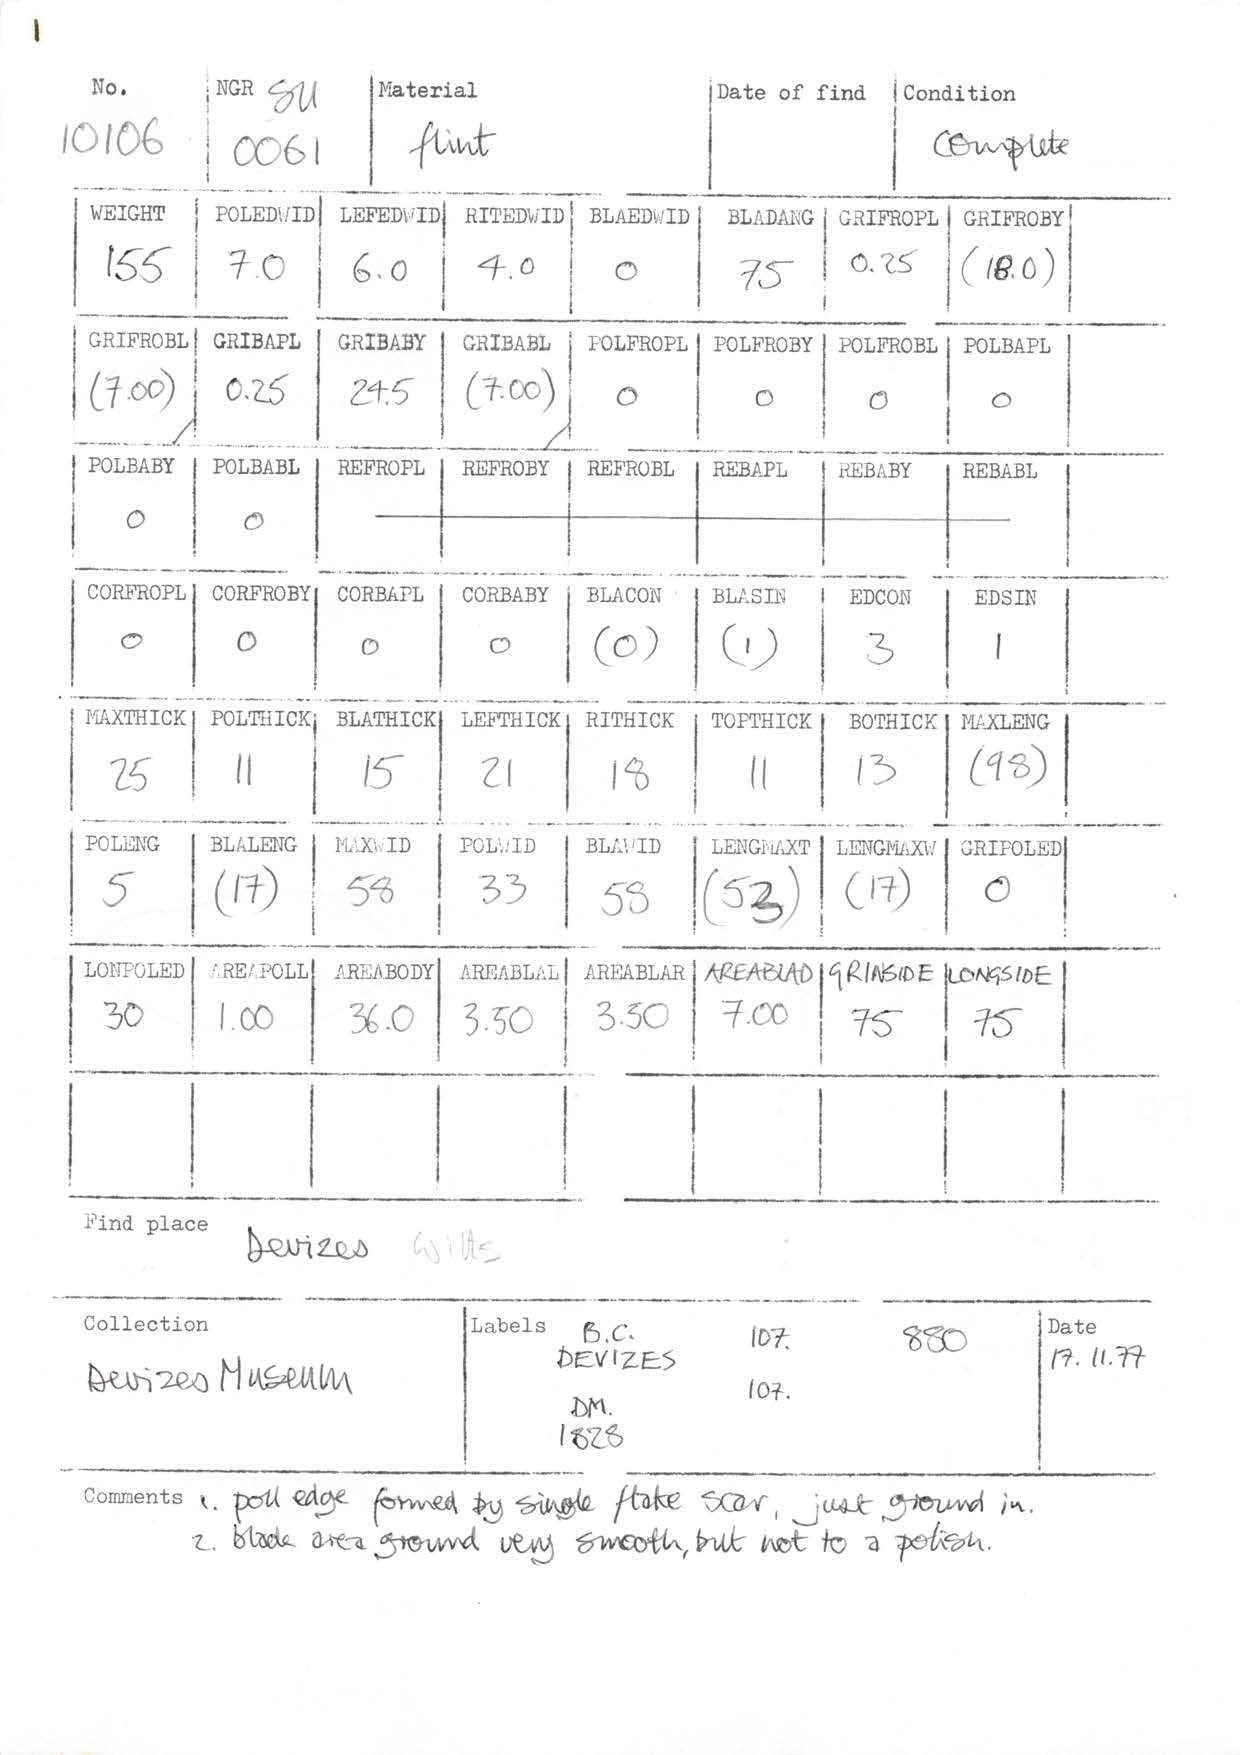 1
No. NGR SU Material Date of find Condition
10106 0061 flint complete
WEIGHT POLEDWID LEFEDWID RITEDWID BLAEDWID BLADANG GRIFROPL GRIFROBY
155 7.0 6.0 4.0 0 75 0.25 (18.0)
GRIFROBL GRIBAPL GRIBABY GRIBABL POLFROPL POLFROBY POLFROBL POLBAPL
(7.00) 0.25 24.5 (7.00) 0 0 0 0
POLBABY POLBABL REFROPL REFROBY REFROBL REBAPL REBABY REBABL
0 0
CORFROPL CORFROBY CORBAPL CORBABY BLACON BLASIN EDCON EDSIN
0 0 0 0 (0) (1) 3 1
MAXTHICK POLTHICK BLATHICK LEFTHICK RITHICK TOPTHICK BOTHICK MAXLENG
25 11 15 21 18 11 13 (98)
POLENG BLALENG MAXWID POLWID BLAWID LENGMAXT LENGMAXW GRIPOLED
5 (17) 58 33 58 (53) (17) 0
LONPOLED AREAPOLL AREABODY AREABLAL AREABLAR AREABLAD GRINSIDE LONGSIDE
30 1.00 36.0 3.50 3.50 7.00 75 75
Find place Devizes Wilts
Collection Labels B.C. 107. 880 Date
DEVIZES 17.11.77
Devizes Museum 107.
DM.
1828
Comments 1. poll edge formed by single flake scar, just ground in.
2. blade area ground very smooth, but not to a polish.